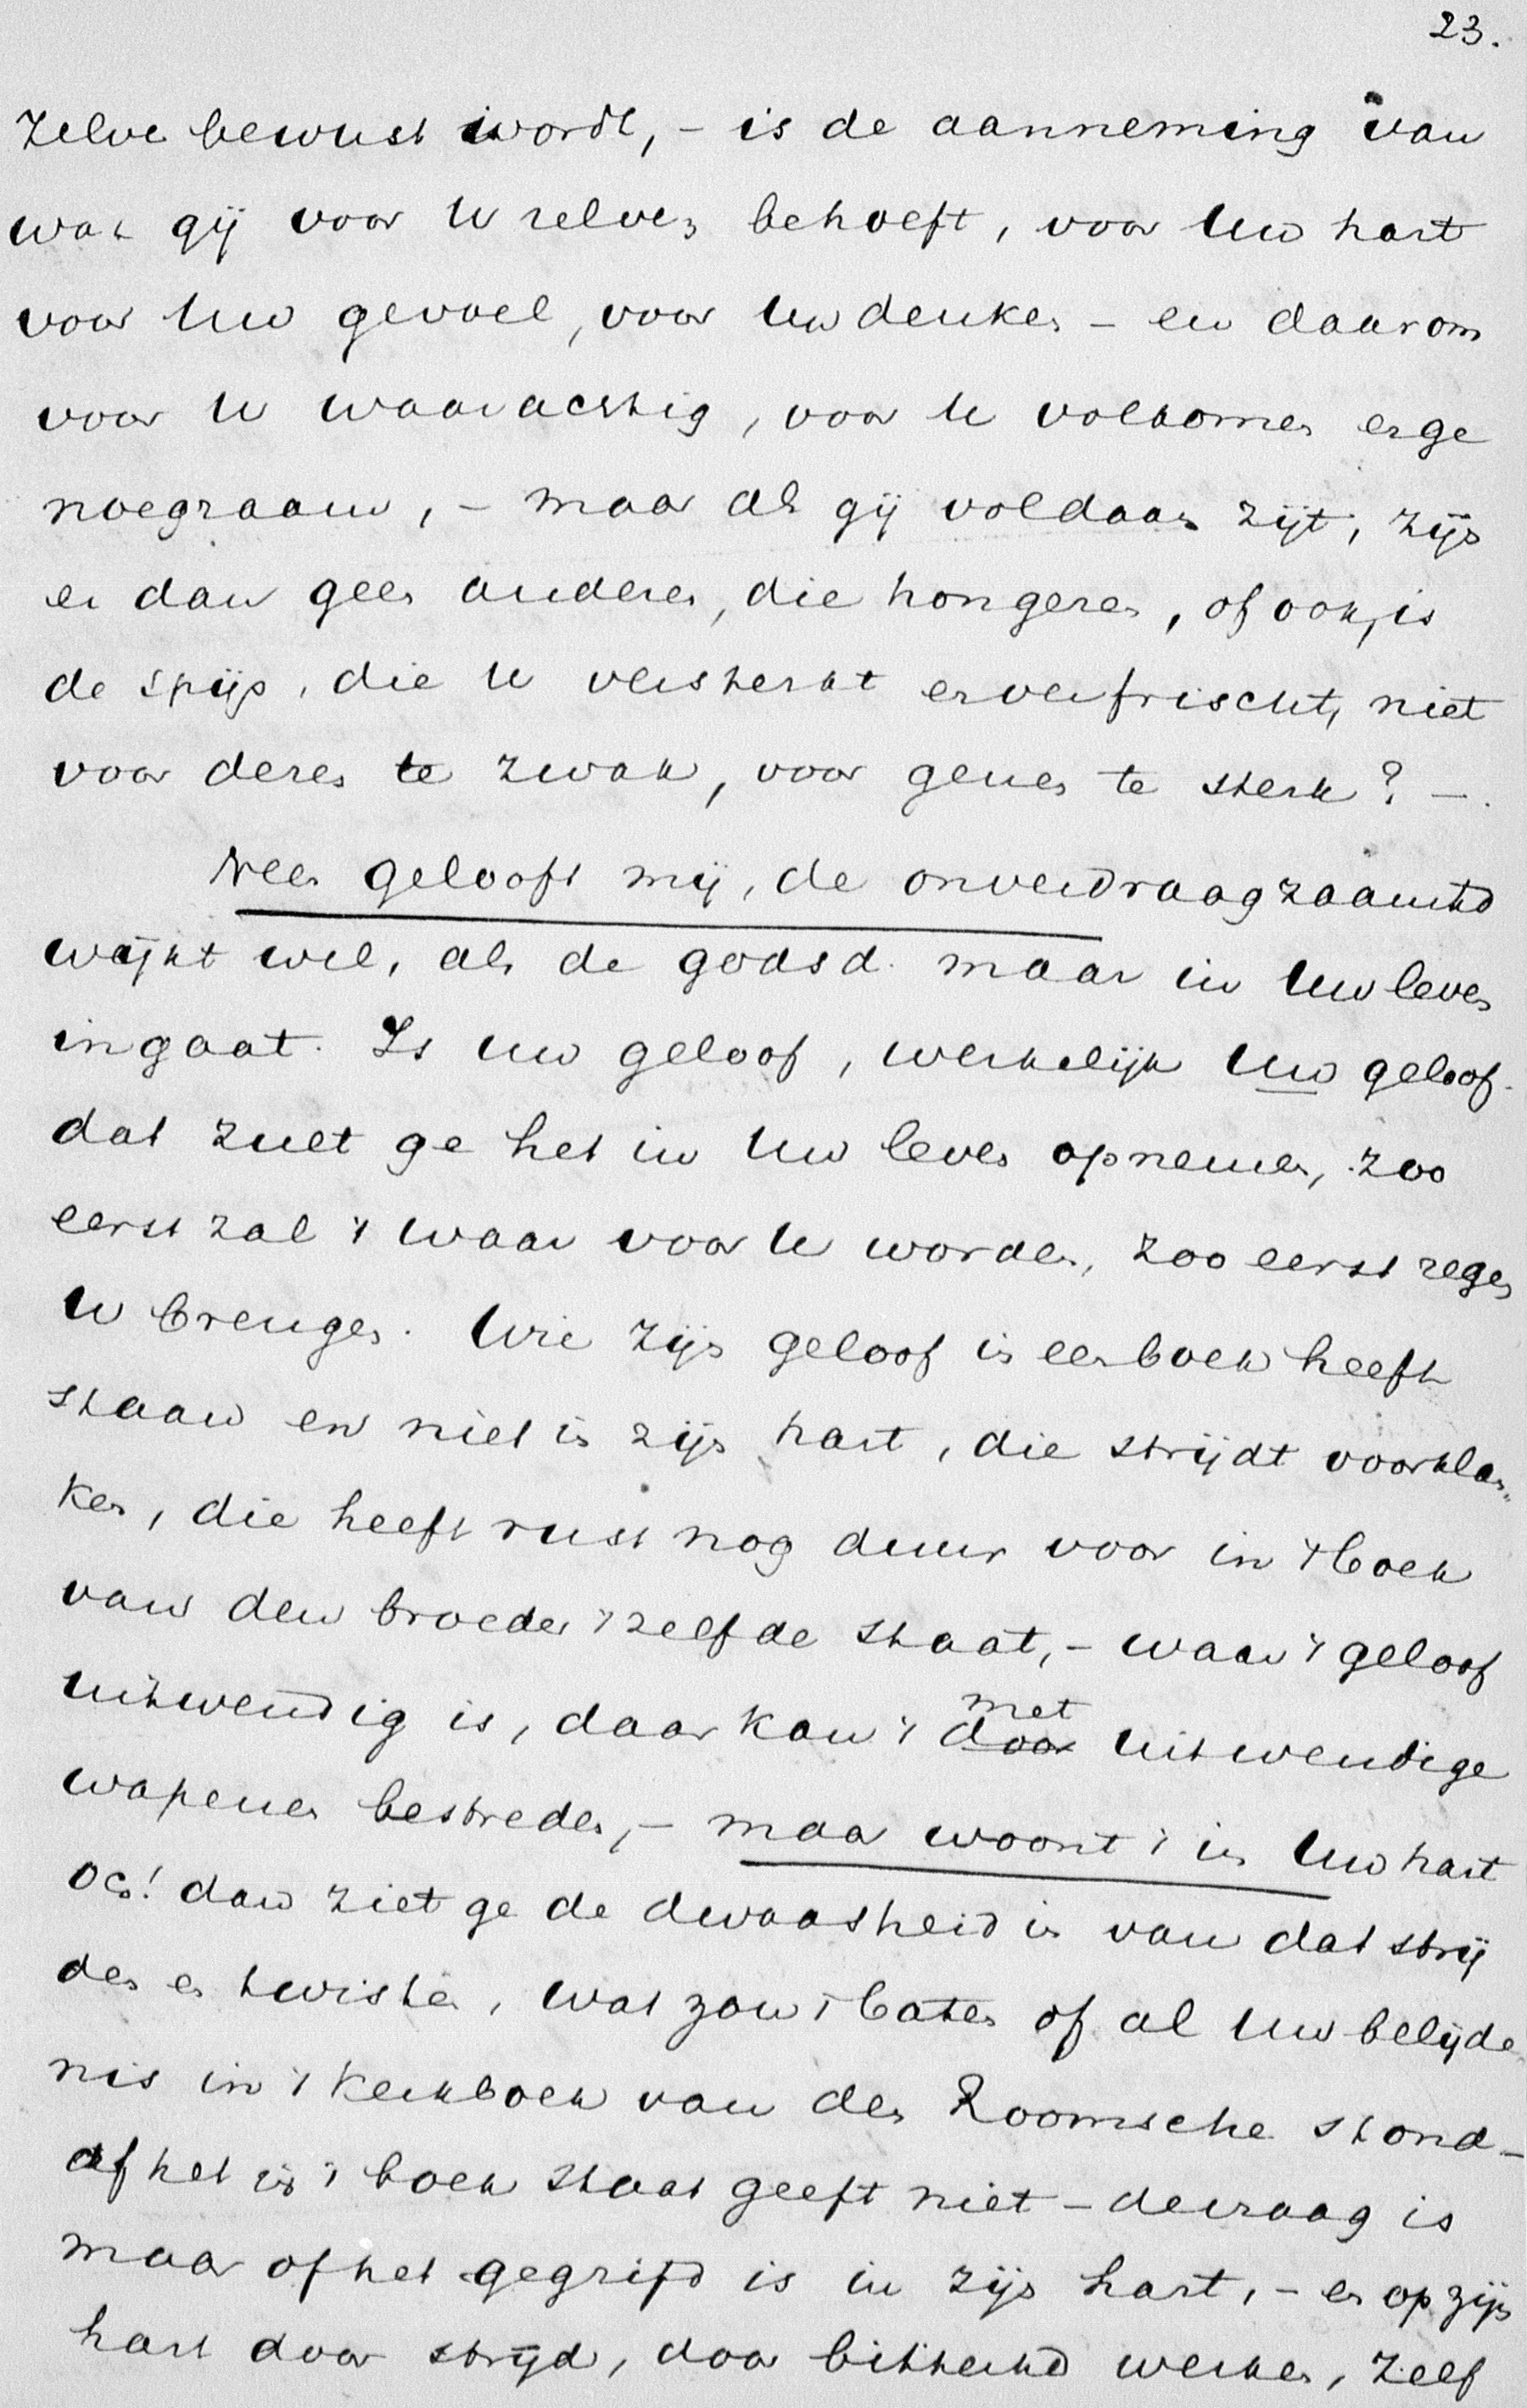 23.
zelve bewust wordt, – is de aanneming van
wat gij voor U zelven behoeft, voor Uw hart
voor Uw gevoel, voor Uw denken – en daarom
voor U waarachtig, voor U volkomen en ge
noegzaam, – maar als gij voldaan zijt, zijn
er dan geen anderen, die hongeren, of ook, is
de spijs, die U versterkt en verfrischt, niet
voor dezen te zwak, voor genen te sterk? –.
Neen gelooft mij, de onverdraagzaamhd
wijkt wel, als de godsd. maar in Uw leven
ingaat. Is uw geloof, werkelijk Uw geloof.
dat zult ge het in Uw leven opnemen, zoo
eerst zal 't waar voor U worden, zoo eerst zegen
U brengen. Wie zijn geloof in een boek heeft
staan en niet in zijn hart, die strijdt voor klan„
ken, die heeft rust nog duur voor in 't boek
van den broeder 't zelfde staat, – waar 't geloof
uitwendig is, daar kan 't met
door uitwendige
wapenen bestreden, – maar woont 't in Uw hart
och! dan ziet ge de dwaasheid in van dat strij
den en twisten, wat zou 't baten of al Uw belijde
nis in 't kerkboek van den Roomsche stond –
of het in 't boek staat geeft niet – de vraag is
maar of het gegrift is in zijn hart, – en op zijn
hart door strijd, door bitterhd werken, zelf